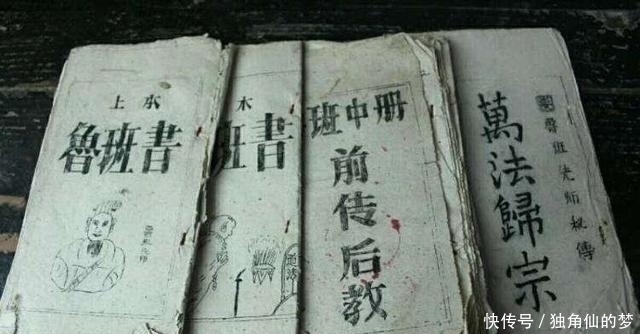 上本
魯班書
木
班書
班中册
前传后教
魯班先师秘傳
萬法歸宗
快传号/独角仙的梦